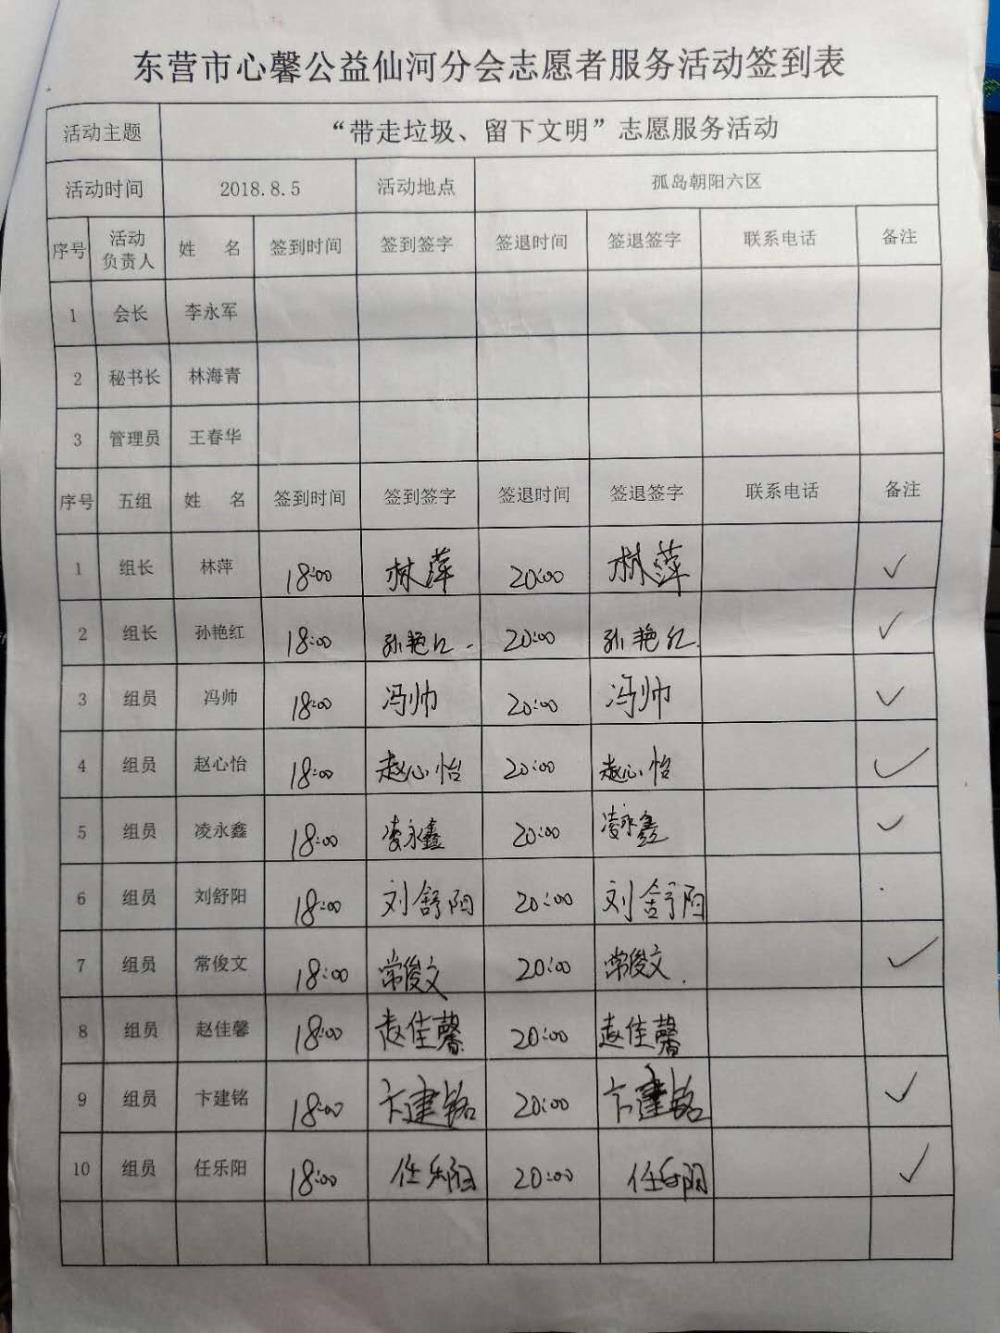 东营市心馨公益仙河分会志愿者服务活动签到表
活动主题 “带走垃圾、留下文明”志愿服务活动
活动时间 2018.8.5 活动地点 孤岛朝阳六区
序号 活动负责人 姓 名 签到时间 签到签字 签退时间 签退签字 联系电话 备注
1 会长 李永军
2 秘书长 林海青
3 管理员 王春华
序号 五组 姓 名 签到时间 签到签字 签退时间 签退签字 联系电话 备注
1 组长 林萍 18:00 林萍 20:00 林萍 ✓
2 组长 孙艳红 18:00 孙艳红 20:00 孙艳红 ✓
3 组员 冯帅 18:00 冯帅 20:00 冯帅 ✓
4 组员 赵心怡 18:00 赵心怡 20:00 赵心怡 ✓
5 组员 凌永鑫 18:00 凌永鑫 20:00 凌永鑫 ✓
6 组员 刘舒阳 18:00 刘舒阳 20:00 刘舒阳
7 组员 常俊文 18:00 常俊文 20:00 常俊文 ✓
8 组员 赵佳馨 18:00 赵佳馨 20:00 赵佳馨
9 组员 卞建铭 18:00 卞建铭 20:00 卞建铭 ✓
10 组员 任乐阳 18:00 任乐阳 20:00 任乐阳 ✓